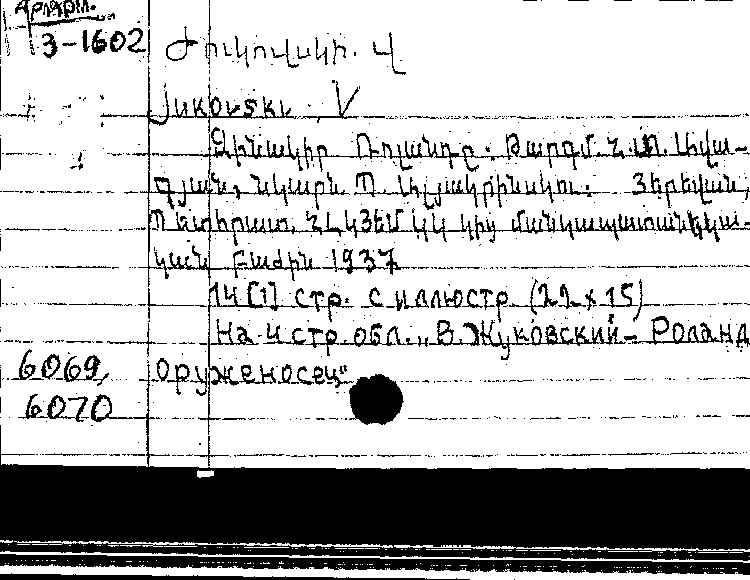 Арм.
3-1602
Ժուկովսկի. Վ
Jukovski. V
Զինակիր Ռոլանդը: Թարգմ. Հ.
գյան, նկարն. Պ. Յերեվան,
Պետհրատ, ՀԼԿՅԵՄ ԿԿ կից մանկապատանեկա-
կան բաժին 1937
14 [1] стр. с иллюстр. (22 x 15)
На 4 стр. обл. „В. Жуковский – Роланд
оруженосец“
6069,
6070